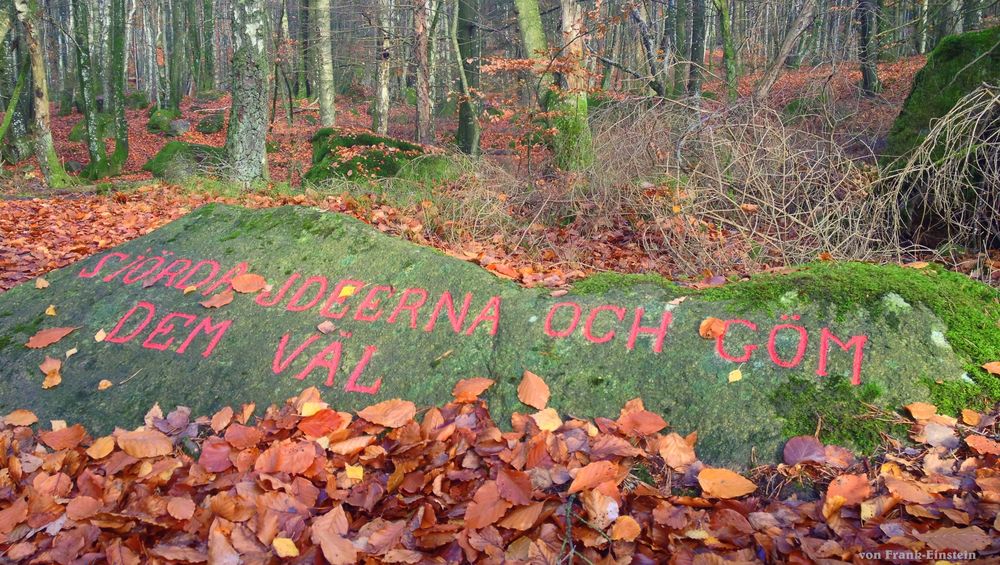 SJÖRDA JDEERNA OCH GÖM
DEM VÄL
von Frank-Einstein